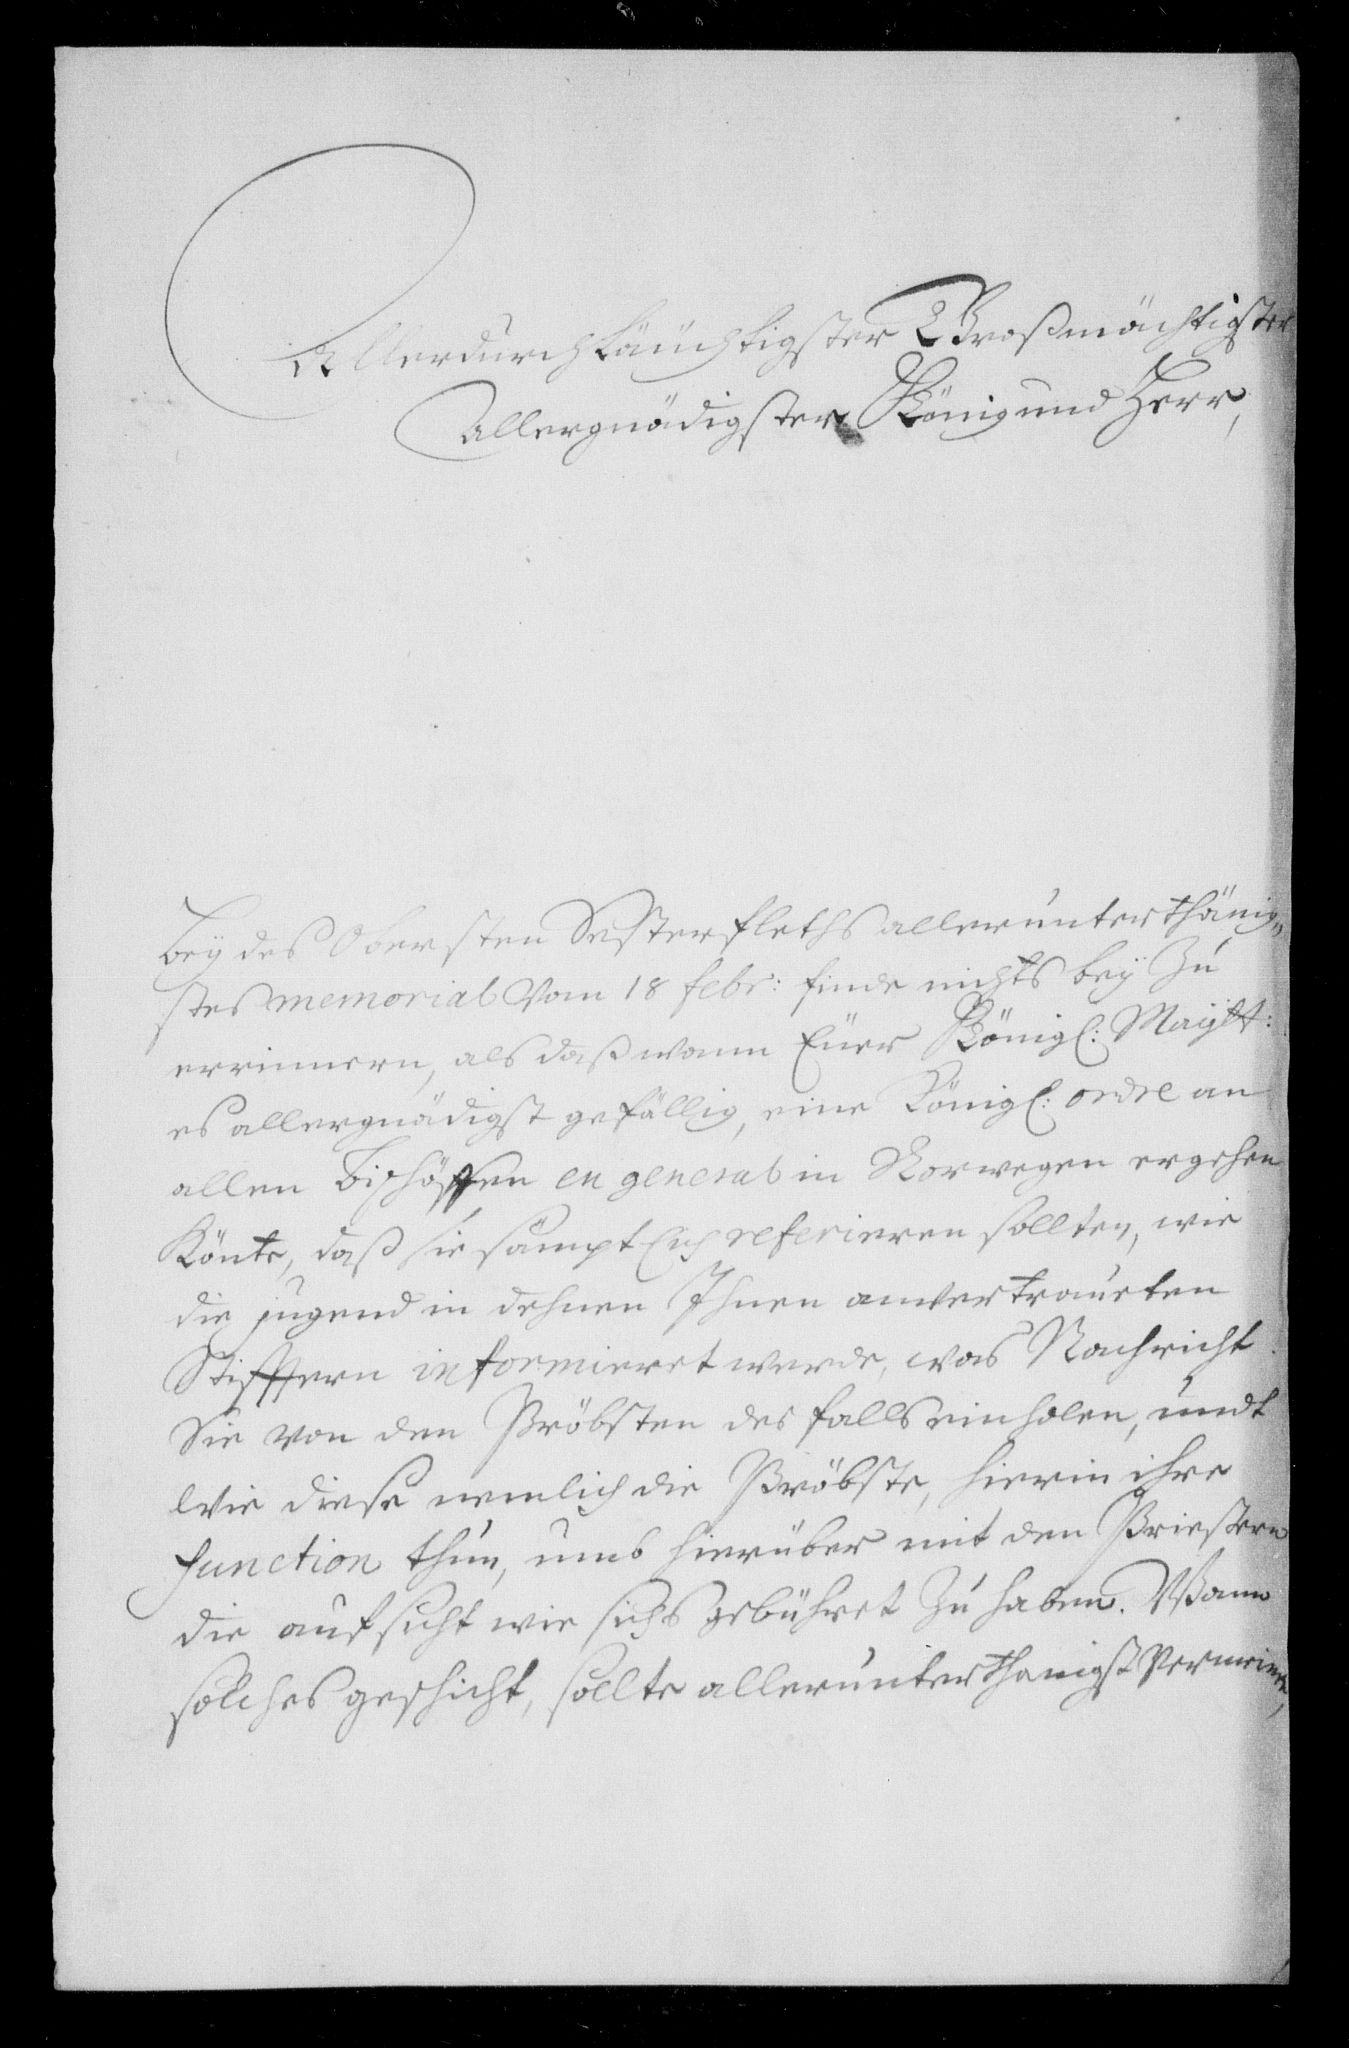 Allerdurchläuchtigster Großmächtigster
Allergnädigster König und Herr,
Bey des Obersten Sesterfleths allerunterthänig„
stes memorial vom 18 febr: finde nichts beÿ zu
errinnern, als daß wann Euer Königl: Maÿtt:
es allergnädigst gefällig, eine Königl: ordre an
allen Bischöffen en general in Norwegen ergehen
könte, daß sie sämptlich referieren sollten, wie
die jugend in dehnen Ihnen anvertraueten
Stifftern informieret werde, was Nachricht
Sie von den Pröbsten des falls einholen, undt
wie diese nemlich die Pröbste, hierin ihre
function thun, umb hierüber mit den Priestern
die aufsicht wie sichs gebühret zu haben. Wann
solches geschicht, sollte allerunterthanigst vermeinen,